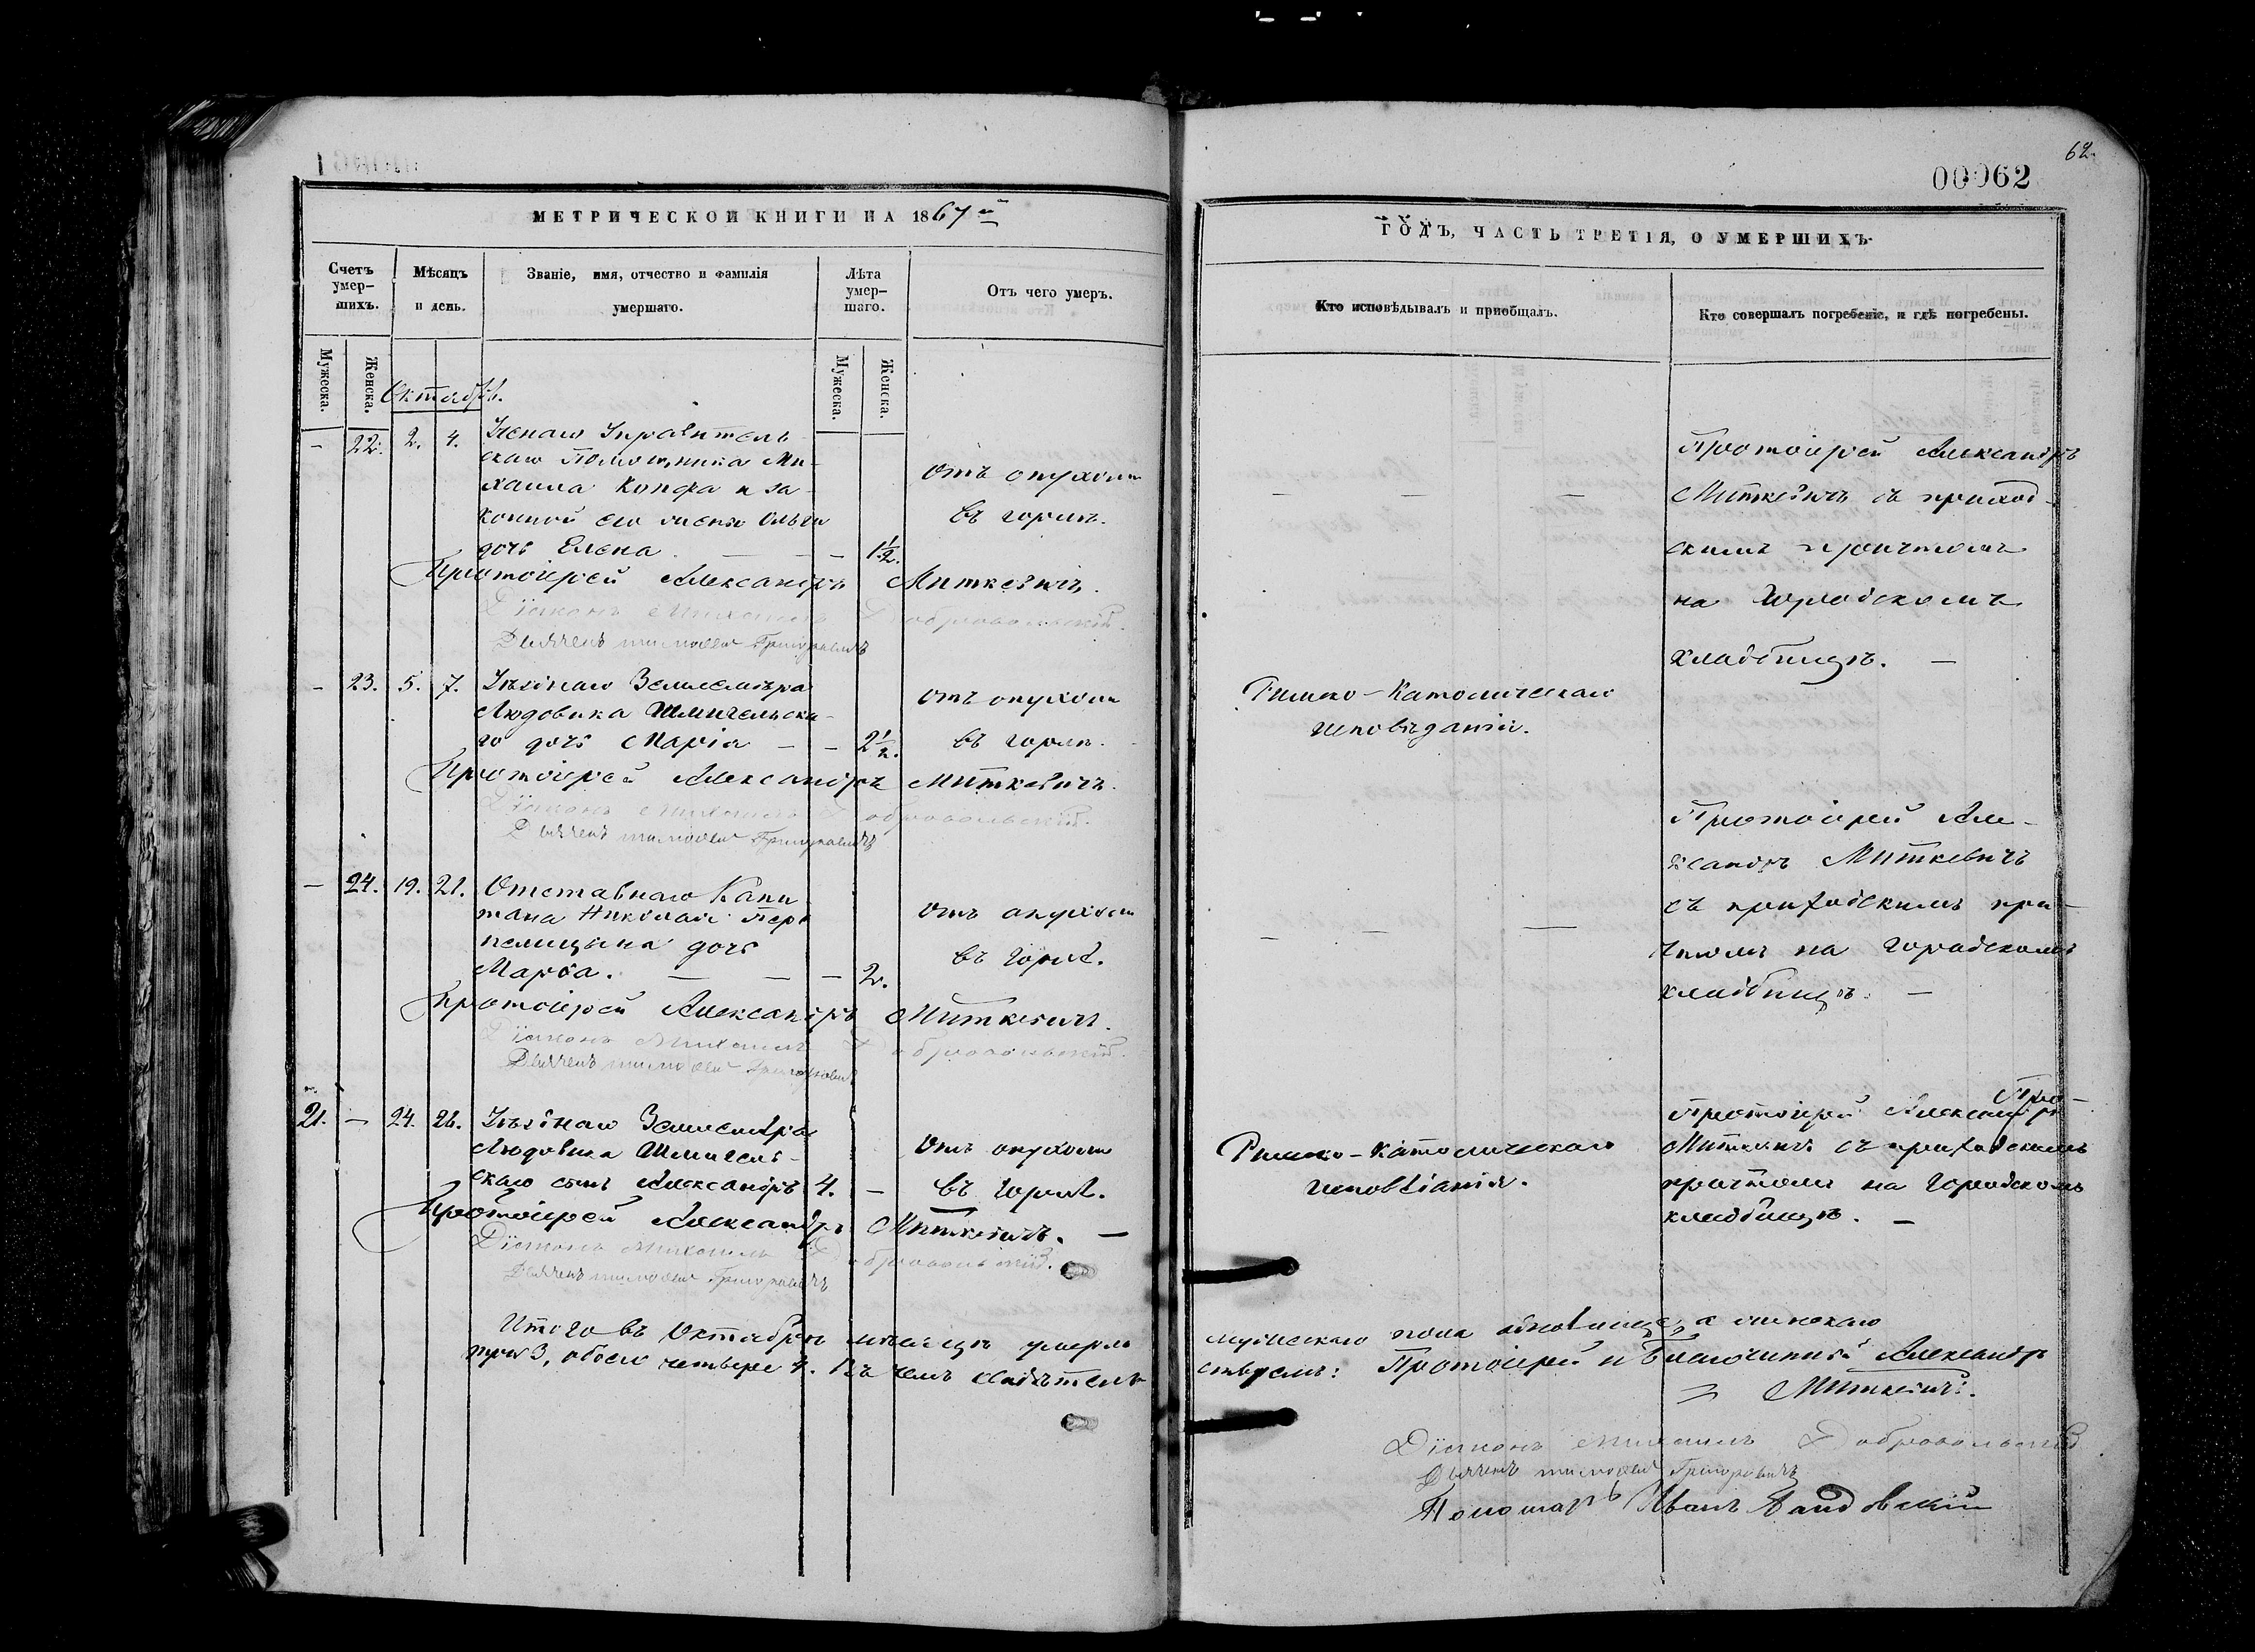 62.
00062
МЕТРИЧЕСКОЙ КНИГИ НА 1867й
Счетъ умер-шихъ.
Мѣсяцъ и день.
Званіе, имя, отчество и фамилія умершаго.
Лѣта умер-шаго.
Отъ чего умеръ.
Мужеска.
Женска.
Мужеска.
Женска.
Октябрь.
– 22. 2. 4. 
скаго Помощника Ми-
хаила Копфа и за-
конной его жены Ольги
дочь Елена. — — – 1 1/2.
отъ опухоли
въ горлѣ.
Протоіерей Александръ Миткевичъ.
Діаконъ Михаилъ Добровольскій.
Дьячекъ Тимофей Григоровичъ
– 23. 5. 7. Уѣзднаго Землемѣра
Людовика Шмигельска-
го дочь Марія – – 2 1/2.
отъ опухоли
въ горлѣ.
Протоіерей Александръ Миткевичъ.
Діаконъ Михаилъ Добровольскій.
Дьячекъ Тимофей Григоровичъ
– 24. 19. 21. Отставнаго Капи
тана Николая Пере
пелицына дочь
Марѳа. — — – 2.
отъ опухоли
въ горлѣ.
Протоіерей Александръ Миткевичъ.
Діаконъ Михаилъ Добровольскій.
Дьячекъ Тимофей Григоровичъ
21. – 24. 26. Уѣзднаго Землемѣра
Людовика Шмигель-
скаго сынъ Александръ 4. –
Отъ опухоли
въ горлѣ.
Протоіерей Александръ Миткевичъ. —
Діаконъ Михаилъ Добровольскій.
Дьячекъ Тимофей Григоровичъ
Итого въ Октябрѣ мѣсяцѣ умерло
три 3, обоего четверо 4. Въ чемъ свидѣтель
ГОДЪ, ЧАСТЬ ТРЕТІЯ, О УМЕРШИХЪ.
Кто исповѣдывалъ и пріобщалъ.
Кто совершалъ погребеніе, и гдѣ погребены.
— — —
Протоіерей Александръ
Миткевичъ съ приход-
скимъ причтомъ
на Городскомъ
кладбищѣ. —
Римско-Католическаго
исповѣданія.
Протоіерей Але-
ксандръ Миткевичъ
съ приходскимъ при-
чтомъ на городскомъ
кладбищѣ. —
— — —
Римско-Католическаго
исповѣданія.
Протоіерей Александръ
Миткевичъ съ приходскимъ
причтомъ на Городскомъ
кладбищѣ. —
мужескаго пола а женскаго
ствуемъ: Протоіерей и Благочинный Александръ
Миткевичъ.
Діаконъ Михаилъ Добровольскій
Дьячекъ Тимофей Григоровичъ
Пономарь Иванъ